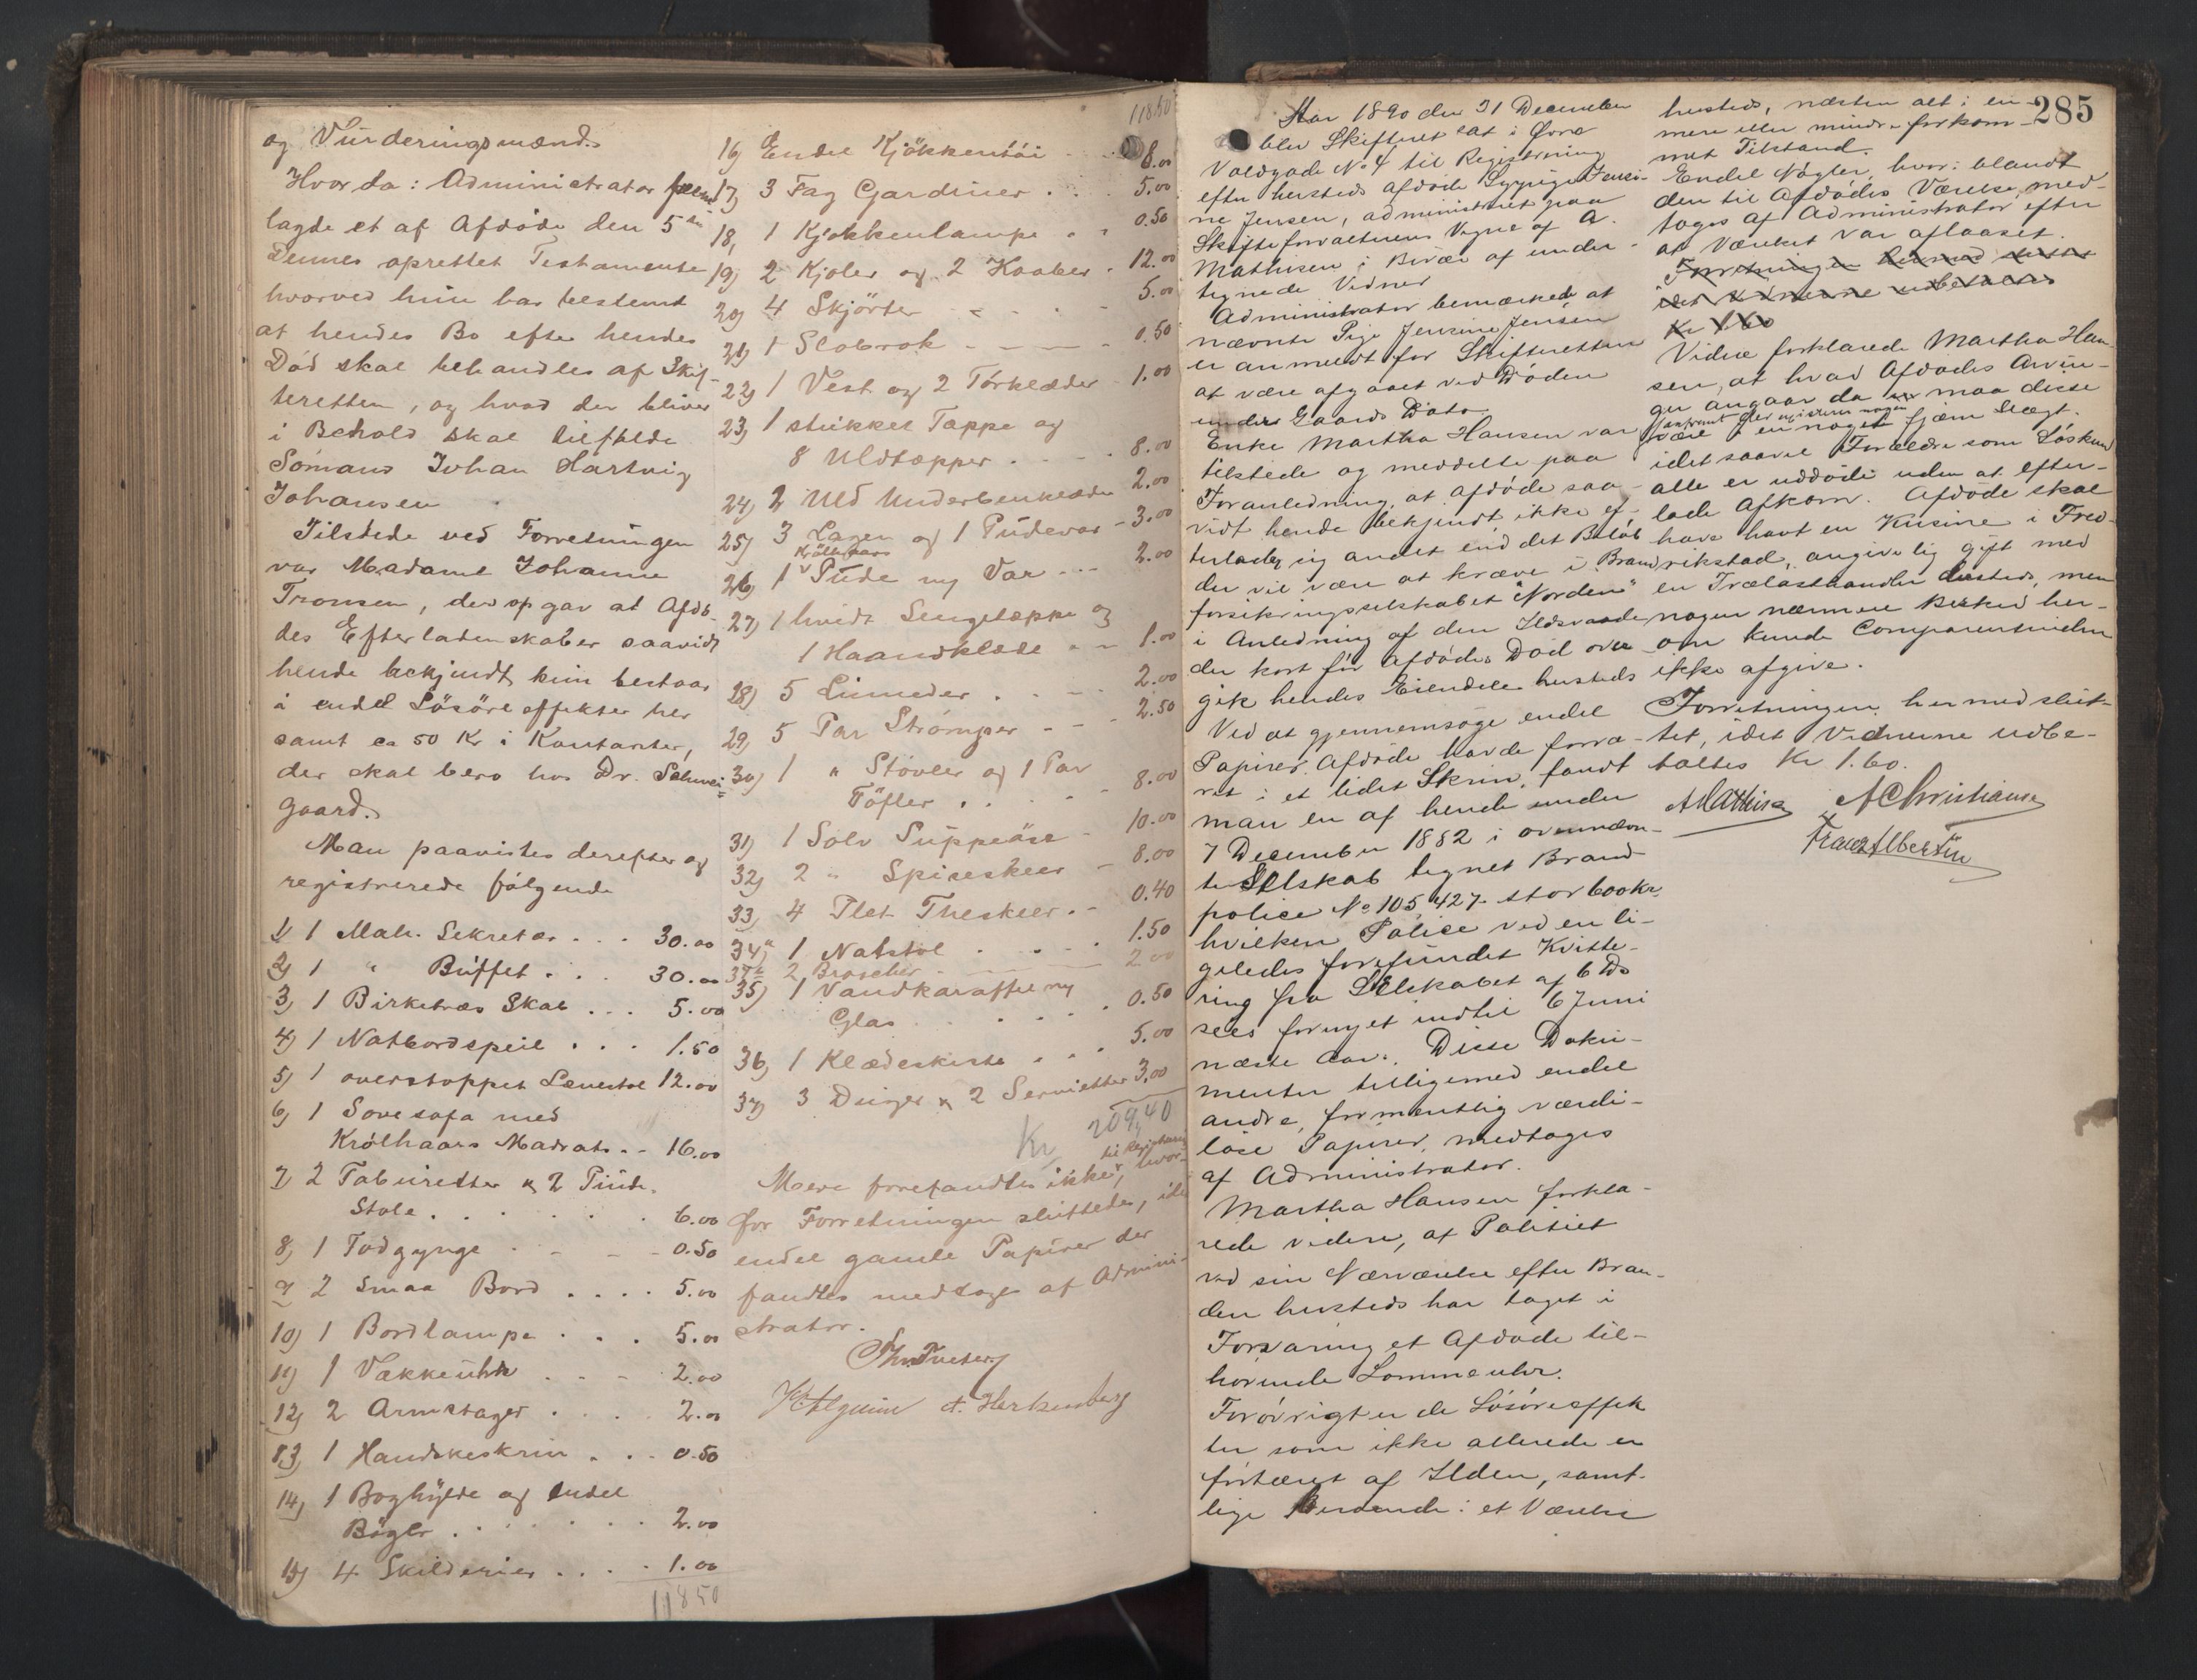 og Vurderingsmænd.
Hvorda: Administrator frem
lagde et af Afdøde den 5te
Dennes oprettet Testamente
hvorved hun har bestemt
at hendes Bo efter hendes
Død skal behandles af Skif-
teretten, og hvad der bliver
i Behold skal tilfalde
Sømand Johan Hartvig
Johansen
Tilstede ved Forretningen
var Madame Johanne
Tronsen, der opgav at Afdø-
des Efterladenskaber saavidt
hende bekjendt kun bestaar
i endel Løsøreeffekter her
samt ca 50 Kr i Kontanter,
der skal bero hos Dr. Schwei-
gaard.
Man paavistes derefter og
registrerede følgende
1) 1 Mah. Sekretær . . . 30.00
2) 1 " Buffet . . . 30.00
3) 1 Birketræs Skab . . . 5.00
4) 1 Natbordspeil . . . 1.50
5) 1 overstoppet Lænestol 12.00
6) 1 Sovesofa med
Krølhaars Madrats . - 16.00
7) 2 Taburetter & 2 Pinde-
Stole . . . . . . 6.00
8) 1 Todgynge - - - 0.50
9) 2 smaa Bord . . . . 5.00
10) 1 Bordlampe . . . 5.00
11) 1 Vækkeuhr . . - 2.00
12) 2 Armstager . . . . 2.00
13) 1 Handskeskrin . . . 0.50
14) 1 Boghylde og endel
Bøger . . . . . . . 2.00
15) 4 Skilderier . . . . 1.00
118 50
118.50
16) Endel Kjøkkentøi - . . 8.00
17) 3 Fag Gardiner . . 5.00
18) 1 Kjøkkenlampe . . 0.50
19) 2 Kjoler og 2 Kaaber . 12.00
20) 4 Skjørter - - - - 5.00
21) 1 Slobrok - - - - 0.50
22) 1 Vest og 2 Tørklæder - 1.00
23) 1 stikket Tæppe og
8 Uldtæpper . . . . 8.00
24) 2 Uld Underbenklæder 2.00
25) 3 Lagen og 1 Pudevar - 3.00
Krølhaars
26) 1 Pude og Var - - - 2.00
27) 1 hvidt Sengetæppe og
1 Haandklæde - - 1.00
28) 5 Linneder . . - - 2.00
29) 5 Par Strømper - - - 2.50
30) 1 " Støvler og 1 Par
Tøfler . . . - - 8.00
31) 1 Sølv Suppeøse - 10.00
32) 2 " Spiseskeer - 8.00
33) 4 Plet Theskeer . - 0.40
34a) 1 Natstol . . . . 1.50
34b 2 Broscher - - - 2.00
35) 1 Vandkaraffel og
Glas . . . . . . 0.50
36) 1 Klædeskiste . . . 5.00
37) 3 Duger & 2 Servietter 3.00
Kr 209,40
til Registrering
Mere forefandtes ikke, hvor-
for Forretningen sluttedes, idet
endel gamle Papirer der
fandtes medtoges af Admini-
strator.
A. Herkenberg
285
Aar 1890 den 31 December
blev Skifteret sat i Øvre
Voldgade No 4 til Registrering
efter hersteds afdøde Sypige Jensi-
ne Jensen, administreret paa
Skifteforvalterens Vegne af A.
Mathisen i Bivær af under-
tegnede Vidner
Administrator bemærkede at
nævnte Pige Jensine Jensen
er anmeldt for Skifteretten
at være afgaaet ved Døden
under Gaards Dato
Enke Martha Hansen var
tilstede og meddelte paa
Foranledning at afdøde saa-
vidt hende bekjendt ikke ef-
terlader sig andet end det Beløb
der vil være at kræve i Brand-
forsikringsselskabet "Norden"
i Anledning af den Ildsvaade
der kort før Afdødes Død over-
gik hendes Eiendele hersteds
Ved at gjennemsøge endel
Papirer Afdøde havde forva-
ret i et lidet Skrin, fandt
man en af hende under
7 December 1882 i ovennævn-
te Selskab tegnet Brand-
police No 105,427 stor 600 kr,
hvilken Police ved en li-
geledes forefundet Kvitte-
ring fra Selskabet af 6 Ds
sees fornyet indtil 6 Juni
næste Aar. Disse Doku-
menter tilligemed endel
andre, formentlig værdi-
løse Papirer, medtoges
af Administrator.
Martha Hansen forkla-
rede videre, at Politiet
ved sin Nærværelse efter Bran-
den hersteds har taget i
Forvaring et Afdøde til-
hørende Lommeuhr.
Forøvrigt er de Løsøreeffek-
ter som ikke allerede er
fortæret af Ilden, samt-
lige Beroende i et Værelse
hersteds, næsten alt i en
mere eller mindre forkom-
met Tilstand.
Endel Nøgler, hvori blandt
den til Afdødes Værelse, med-
toges af Administrator efter
at Værelset var aflaaset.
Forretningen hermed sluttet
idet Vidnerne udbetaltes
Kr 1.60
Videre forklarede Martha Han-
sen, at hvad Afdødes Arvin-
ger angaar da maa disse
jaafremt der existerer nogen
være i en noget fjern Slægt.
idet saavel Forældre som Søskend
alle er uddøde uden at efter-
lade Afkom. Afdøde skal
have havt en Kusine i Fred-
rikstad, angivelig gift med
en Trælasthandler dersteds, men
nogen nærmere Besked her-
om kunde Comparentinden
ikke afgive.
Forretningen hermed slut-
tet, idet Vidnerne udbe-
taltes Kr 1.60.
AMathisen AChristiansen
Franz Albertin